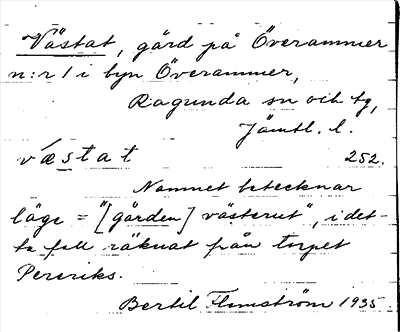 Västat, gård på Överammer
n:r 1 i byn Överammer,
Ragunda sn och tg,
Jämtl. l.
væstat 252.
Namnet betecknar
läge = "[gården] västerut", i det-
ta fall räknat från torpet
Pereriks.
Bertil Flemström 1935